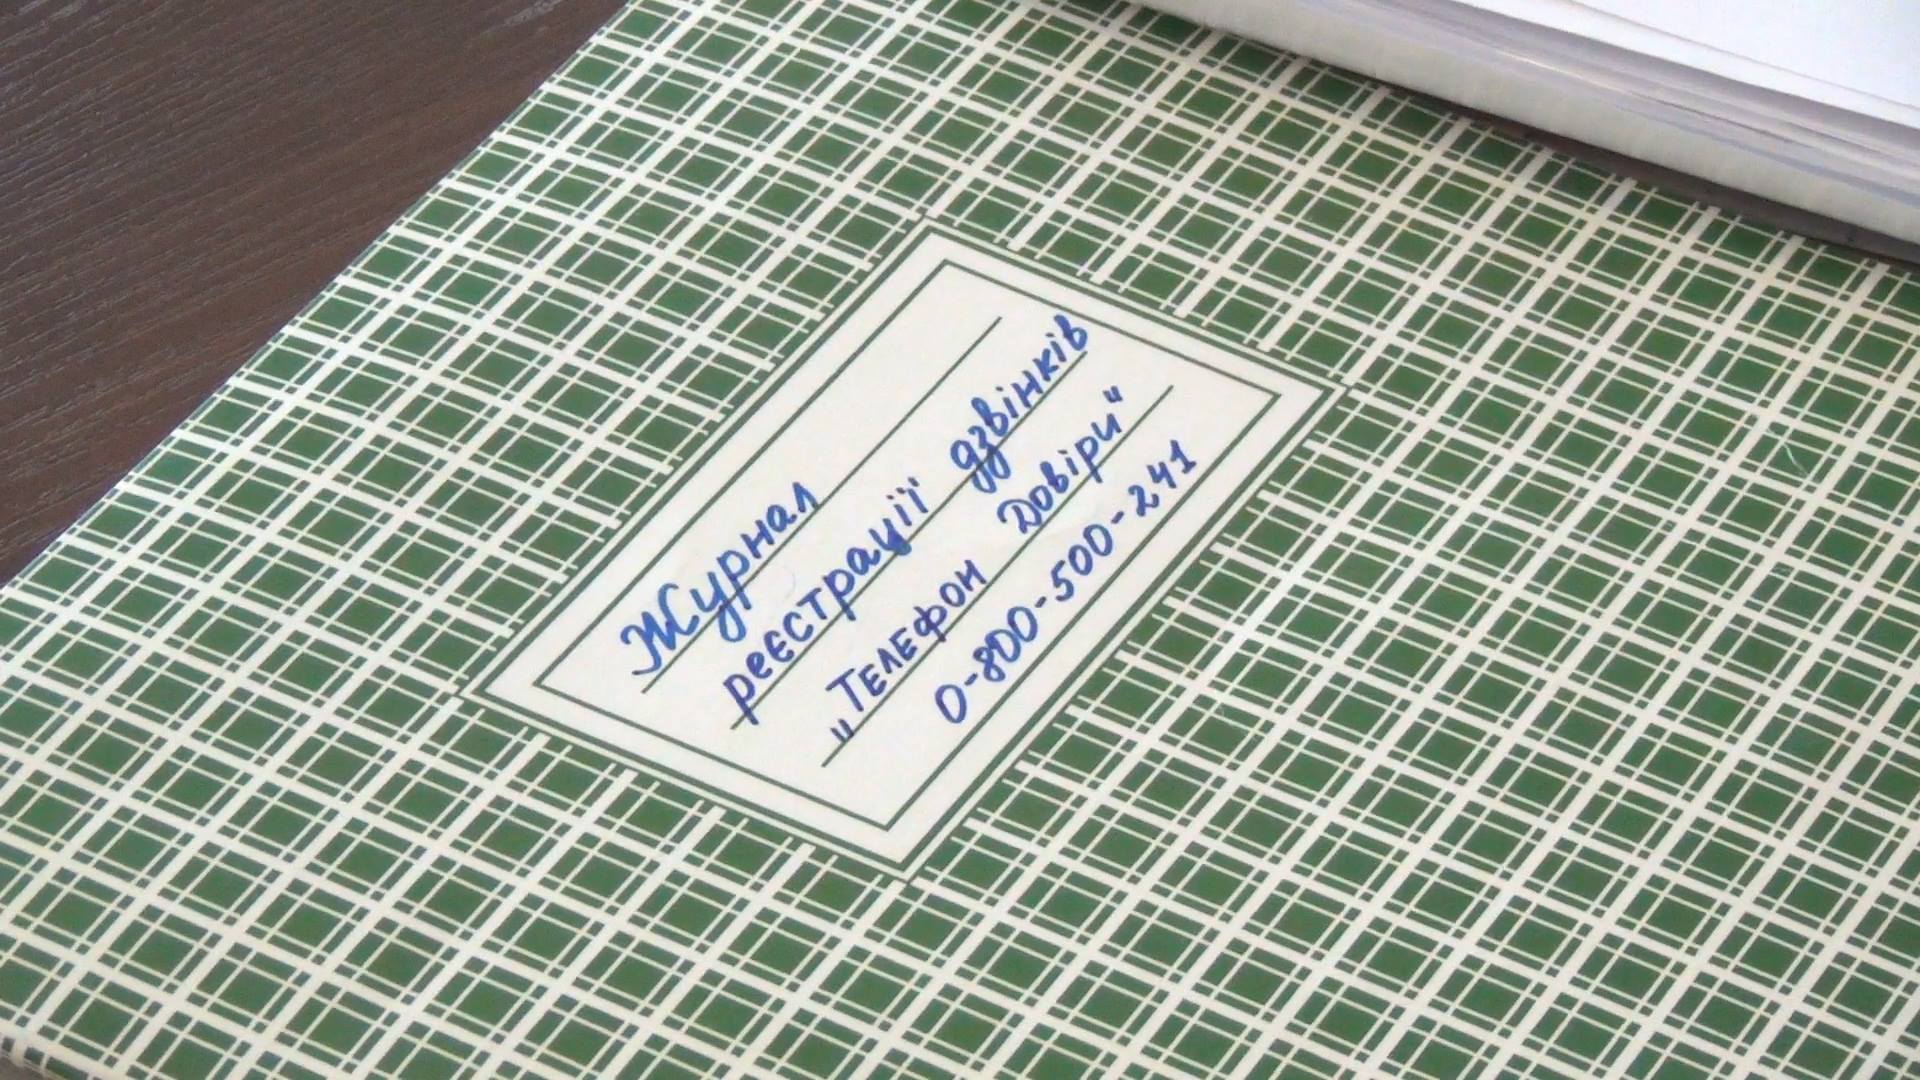 Журнал
реєстрації дзвінків
"Телефон Довіри"
0-800-500-241